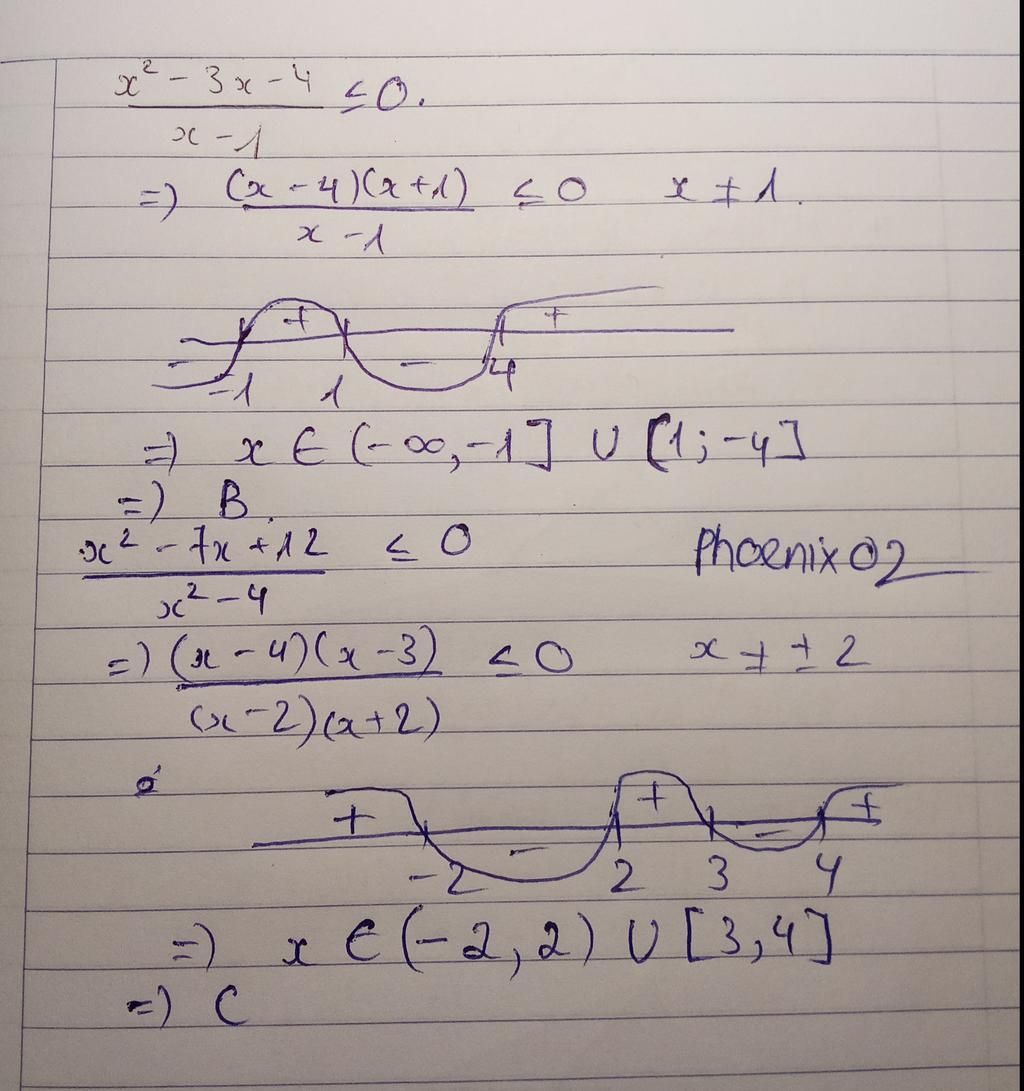 x² - 3x - 4 ≤ 0.
x - 1
=) (x - 4)(x + 1) ≤ 0 x ≠ 1.
x - 1
+ +
- -
-1 1 4
=) x ∈ (-∞, -1] ∪ [1; -4]
=) B.
x² - 7x + 12 ≤ 0 Phoenix02
x² - 4
=) (x - 4)(x - 3) ≤ 0 x ≠ ± 2
(x - 2)(x + 2)
+ + +
- -
-2 2 3 4
=) x ∈ (-2, 2) ∪ [3, 4]
=) C